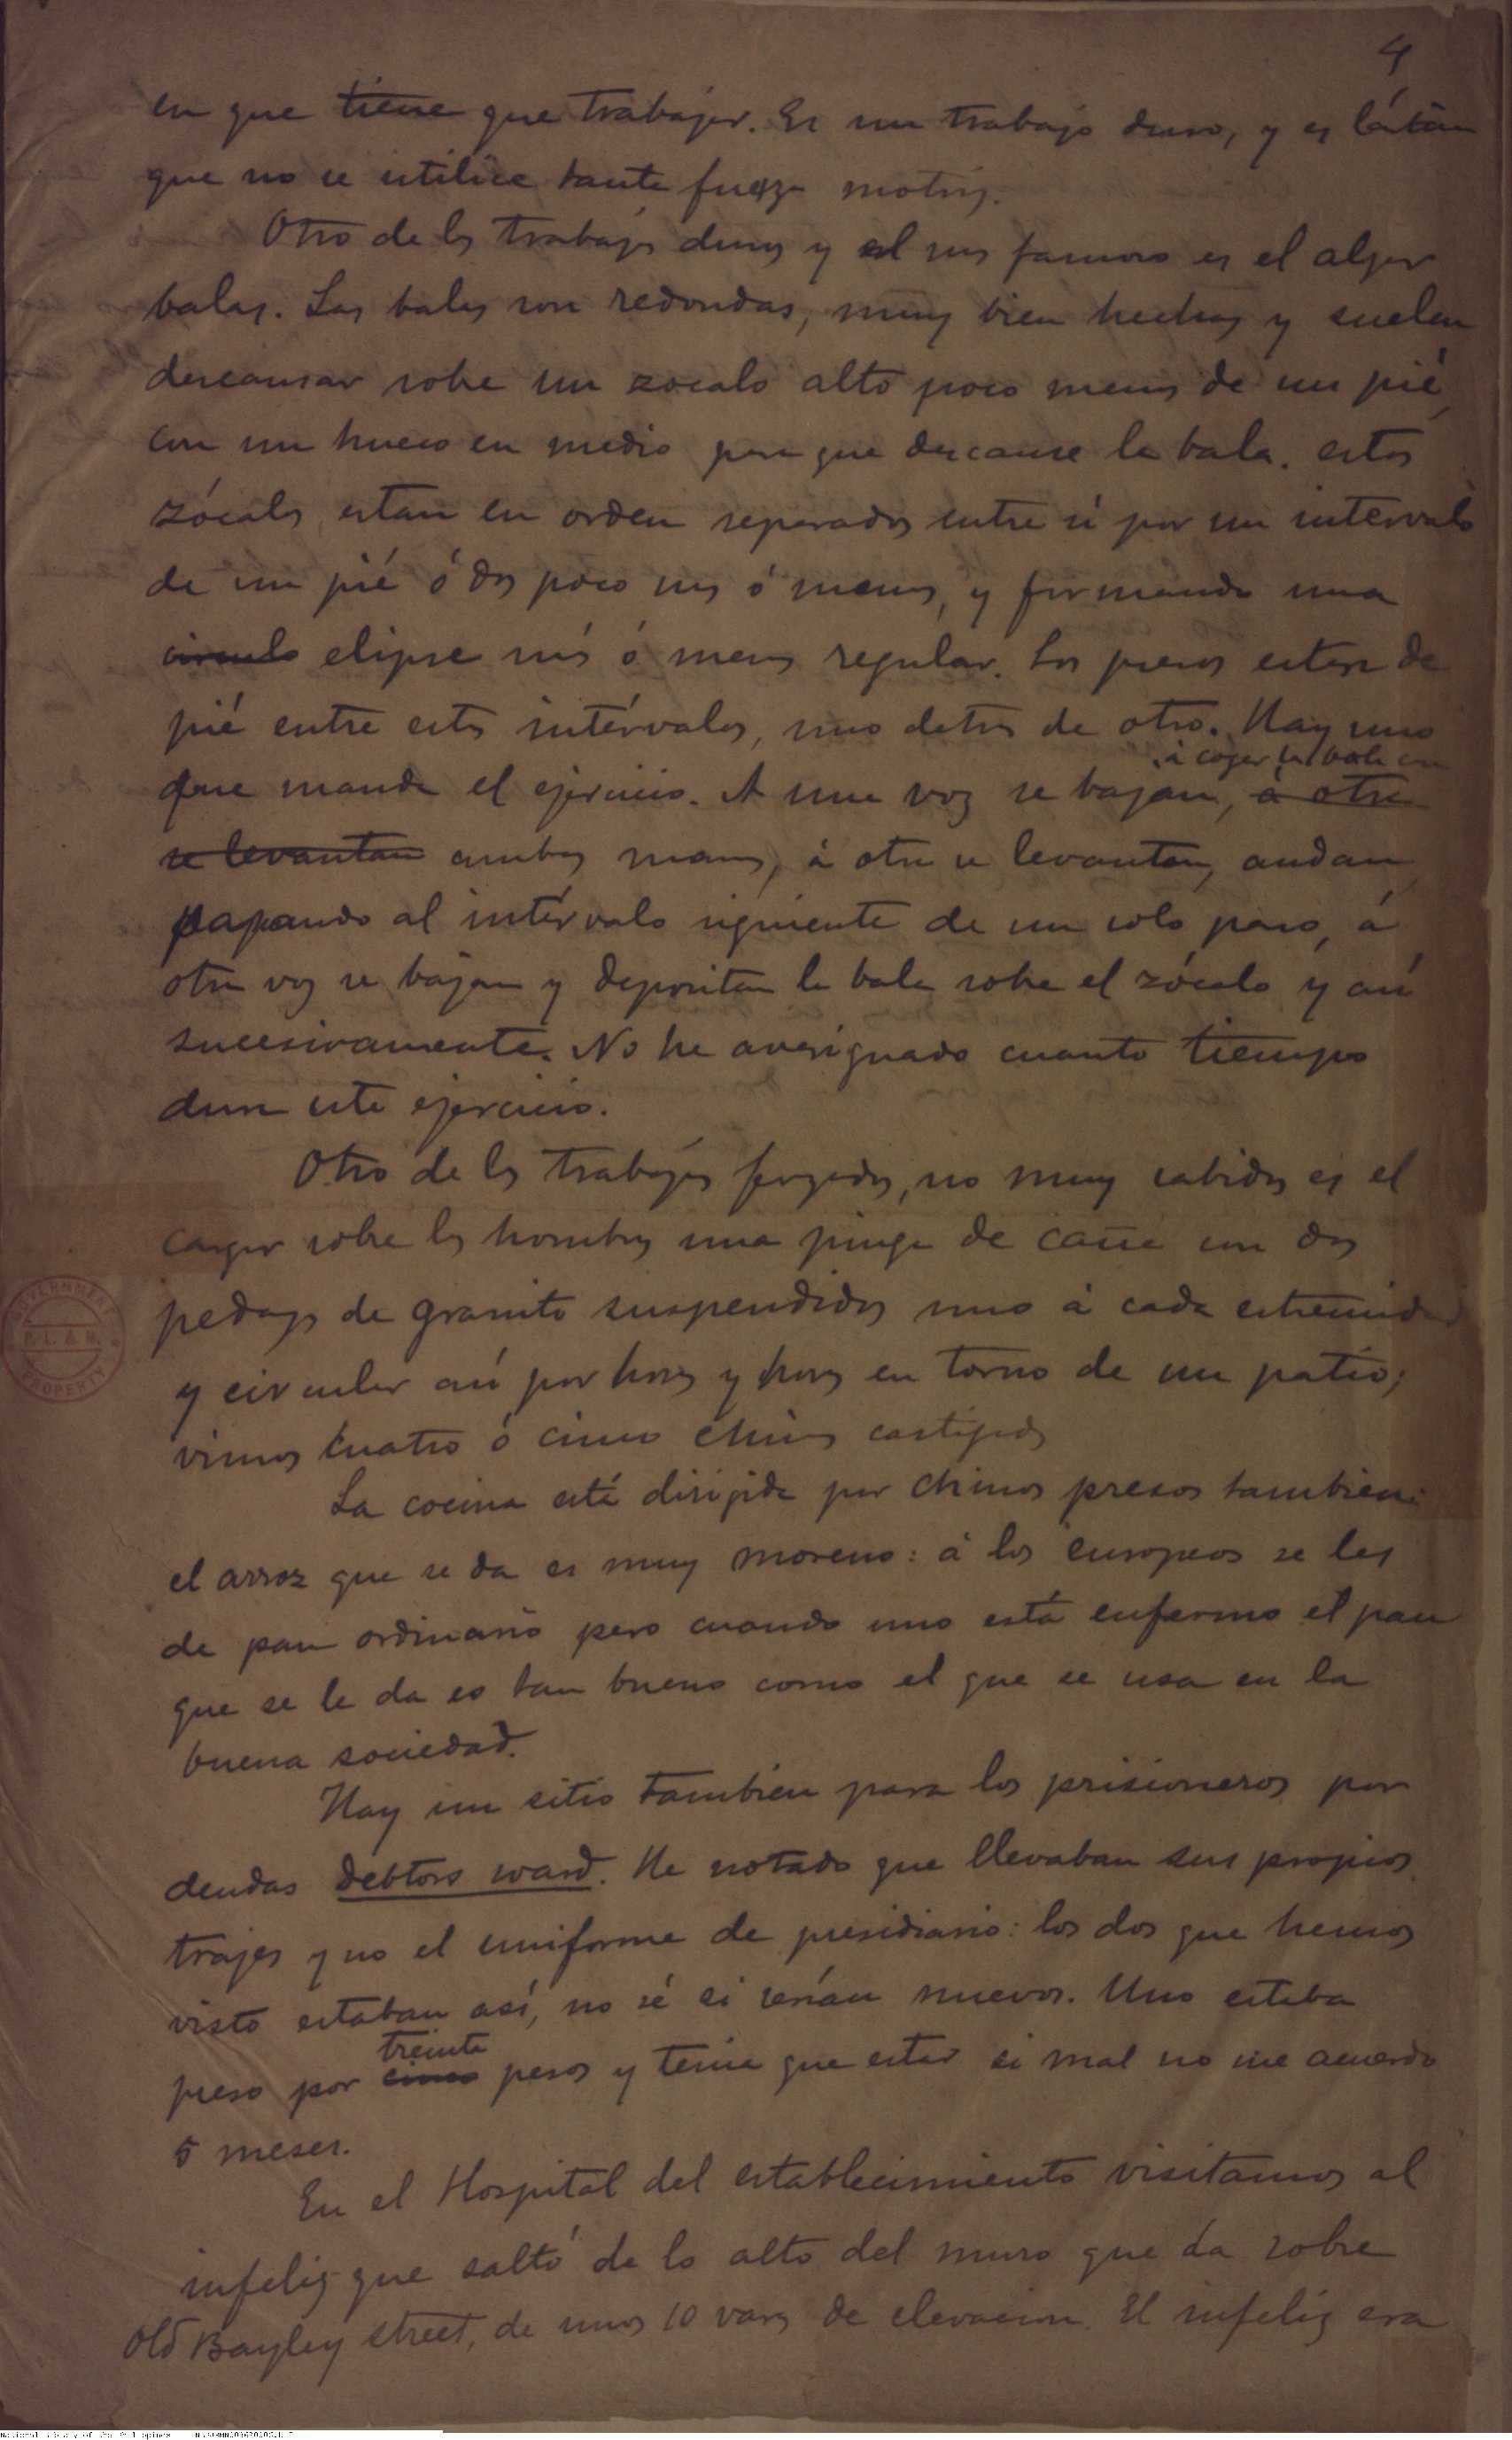 4
en que tiene que trabajar. Es un trabajo duro, y es lástima
que no se utilice tanta fuerza motriz.
Otro de los trabajos duros y el mas famoso es el alzar
balas. Las balas son redondas, muy bien hechas y suelen
descansar sobre un zocalo alto poco menos de un pié
con un hueco en medio para que descanse la bala. estos
zócalos estan en orden separados entre sí por un intervalo
de un pié ó dos poco mas ó menos, y formando una
circulo elipse más ó menos regular. Los presos estan de
pié entre estos intérvalos, uno detras de otro. Hay uno
que manda el ejercicio. A una voz se bajan, á otra
á coger la bala con
se levantan ambas manos, á otra se levantan, andan
pasando al intérvalo siguiente de un solo paso, á
otra voz se bajan y depositan la bala sobre el zócalo y así
sucesivamente. No he averiguado cuanto tiempo
dura este ejercicio.
Otro de los trabajos forzados, no muy sabidos es el
cargar sobre los hombros una pinga de caña con dos
pedazos de granito suspendidos uno á cada estremidad
y circular así por horas y horas en torno de un patio;
vimos cuatro ó cinco chinos castigados
La cocina está dirigida por chinos presos tambien:
el arroz que se da es muy moreno: á los europeos se les
da pan ordinario pero cuando uno está enfermo el pan
que se le da es tan bueno como el que se usa en la
buena sociedad.
Hay un sitio tambien para los prisioneros por
deudas Debtors ward. He notado que llevaban sus propios
trajes y no el uniforme de presidiario: los dos que hemos
visto estaban así, no sé si serían nuevos. Uno estaba
treinta
preso por cinco pesos y tenia que estar si mal no me acuerdo
5 meses.
En el Hospital del establecimiento visitamos al
infeliz que saltó de lo alto del muro que da sobre
Old Bayley street, de unos 10 varas de elevacion. El infeliz era
GOVERNMENT
PROPERTY